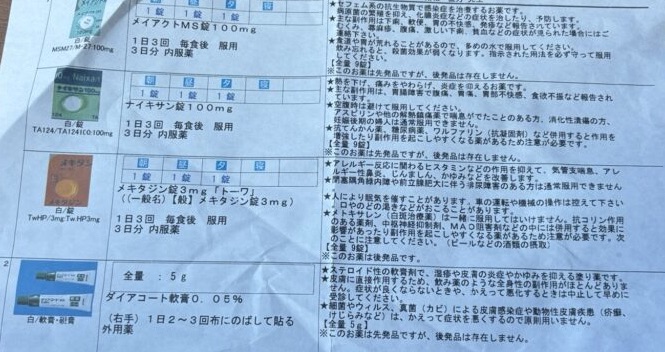 メイアクトMS錠100mg
白/錠
MSM27/M-27:100mg
1日3回 毎食後 服用
3日分 内服薬
1錠 1錠 1錠
★セフェム系の抗生物質で感染症を治すお薬です。
病原菌の繁殖を抑え、化膿炎症などの症状を治したり、予防します。
【全量 9錠】
※このお薬は先発品ですが、後発品は存在しません。
朝 昼 夕 寝
1錠 1錠 1錠
ナイキサン錠100mg
1日3回 毎食後 服用
3日分 内服薬
白/錠
TA124/TA124(C0:100mg
★熱を下げ、痛みをやわらげ、炎症を抑えるお薬です。
★主な副作用は、胃腸障害で腹痛、胃痛、胃部不快感、食欲不振など報告されています。
★空腹時は避けて服用してください。
アスピリンや他の解熱鎮痛薬で喘息がでたことのある方、消化性潰瘍の方、
妊娠後期の婦人は通常服用できません。
★抗てんかん薬、糖尿病薬、ワルファリン(抗凝固剤)など併用すると作用を
増強したり副作用を起こしやすくなる薬があるため注意が必要です。
【全量 9錠】
※このお薬は先発品ですが、後発品は存在しません。
朝 昼 夕 寝
1錠 1錠 1錠
メキタジン錠3mg「トーワ」
((一般名)【般】メキタジン錠3mg)
1日3回 毎食後 服用
3日分 内服薬
白/錠
TwHP/3mg:Tw.HP3mg
★アレルギー反応に関わるヒスタミンなどの作用を抑えて、気管支喘息、アレ
ルギー性鼻炎、じんましん、かゆみなどを改善します。
★閉塞隅角緑内障や前立腺肥大に伴う排尿障害のある方は通常服用できません。
★人により眠気を催すことがあります。車の運転や機械の操作は控えて下さい。
口やのどの渇きなどが出ることがあります。
★メトキサレン(白斑治療薬)は一緒に服用してはいけません。抗コリン作用
のある薬剤、中枢神経抑制剤、MAO阻害剤などの中には併用すると効果に
影響があったり副作用を起こしやすくなる薬があるため注意が必要です。次
のことに注意してください。(ビールなどの酒類の摂取)
【全量 9錠】
※このお薬は後発品です。
2
全量 : 5g
ダイアコート軟膏0.05%
(右手)1日2～3回布にのばして貼る
外用薬
白/軟膏・絆膏
★ステロイド性の軟膏剤で、湿疹や皮膚の炎症やかゆみを抑える塗り薬です。
★皮膚に直接作用するため、飲み薬のような全身性の副作用がほとんどありま
せん。症状が良くならないときや、かえって悪化するときは中止して早めに
受診してください。
★細菌やウィルス、真菌(カビ)による皮膚感染症や動物性皮膚疾患(疥癬、
けじらみなど)は、かえって症状を悪くするので原則用いません。
【全量 5g】
※このお薬は先発品ですが、後発品は存在しません。